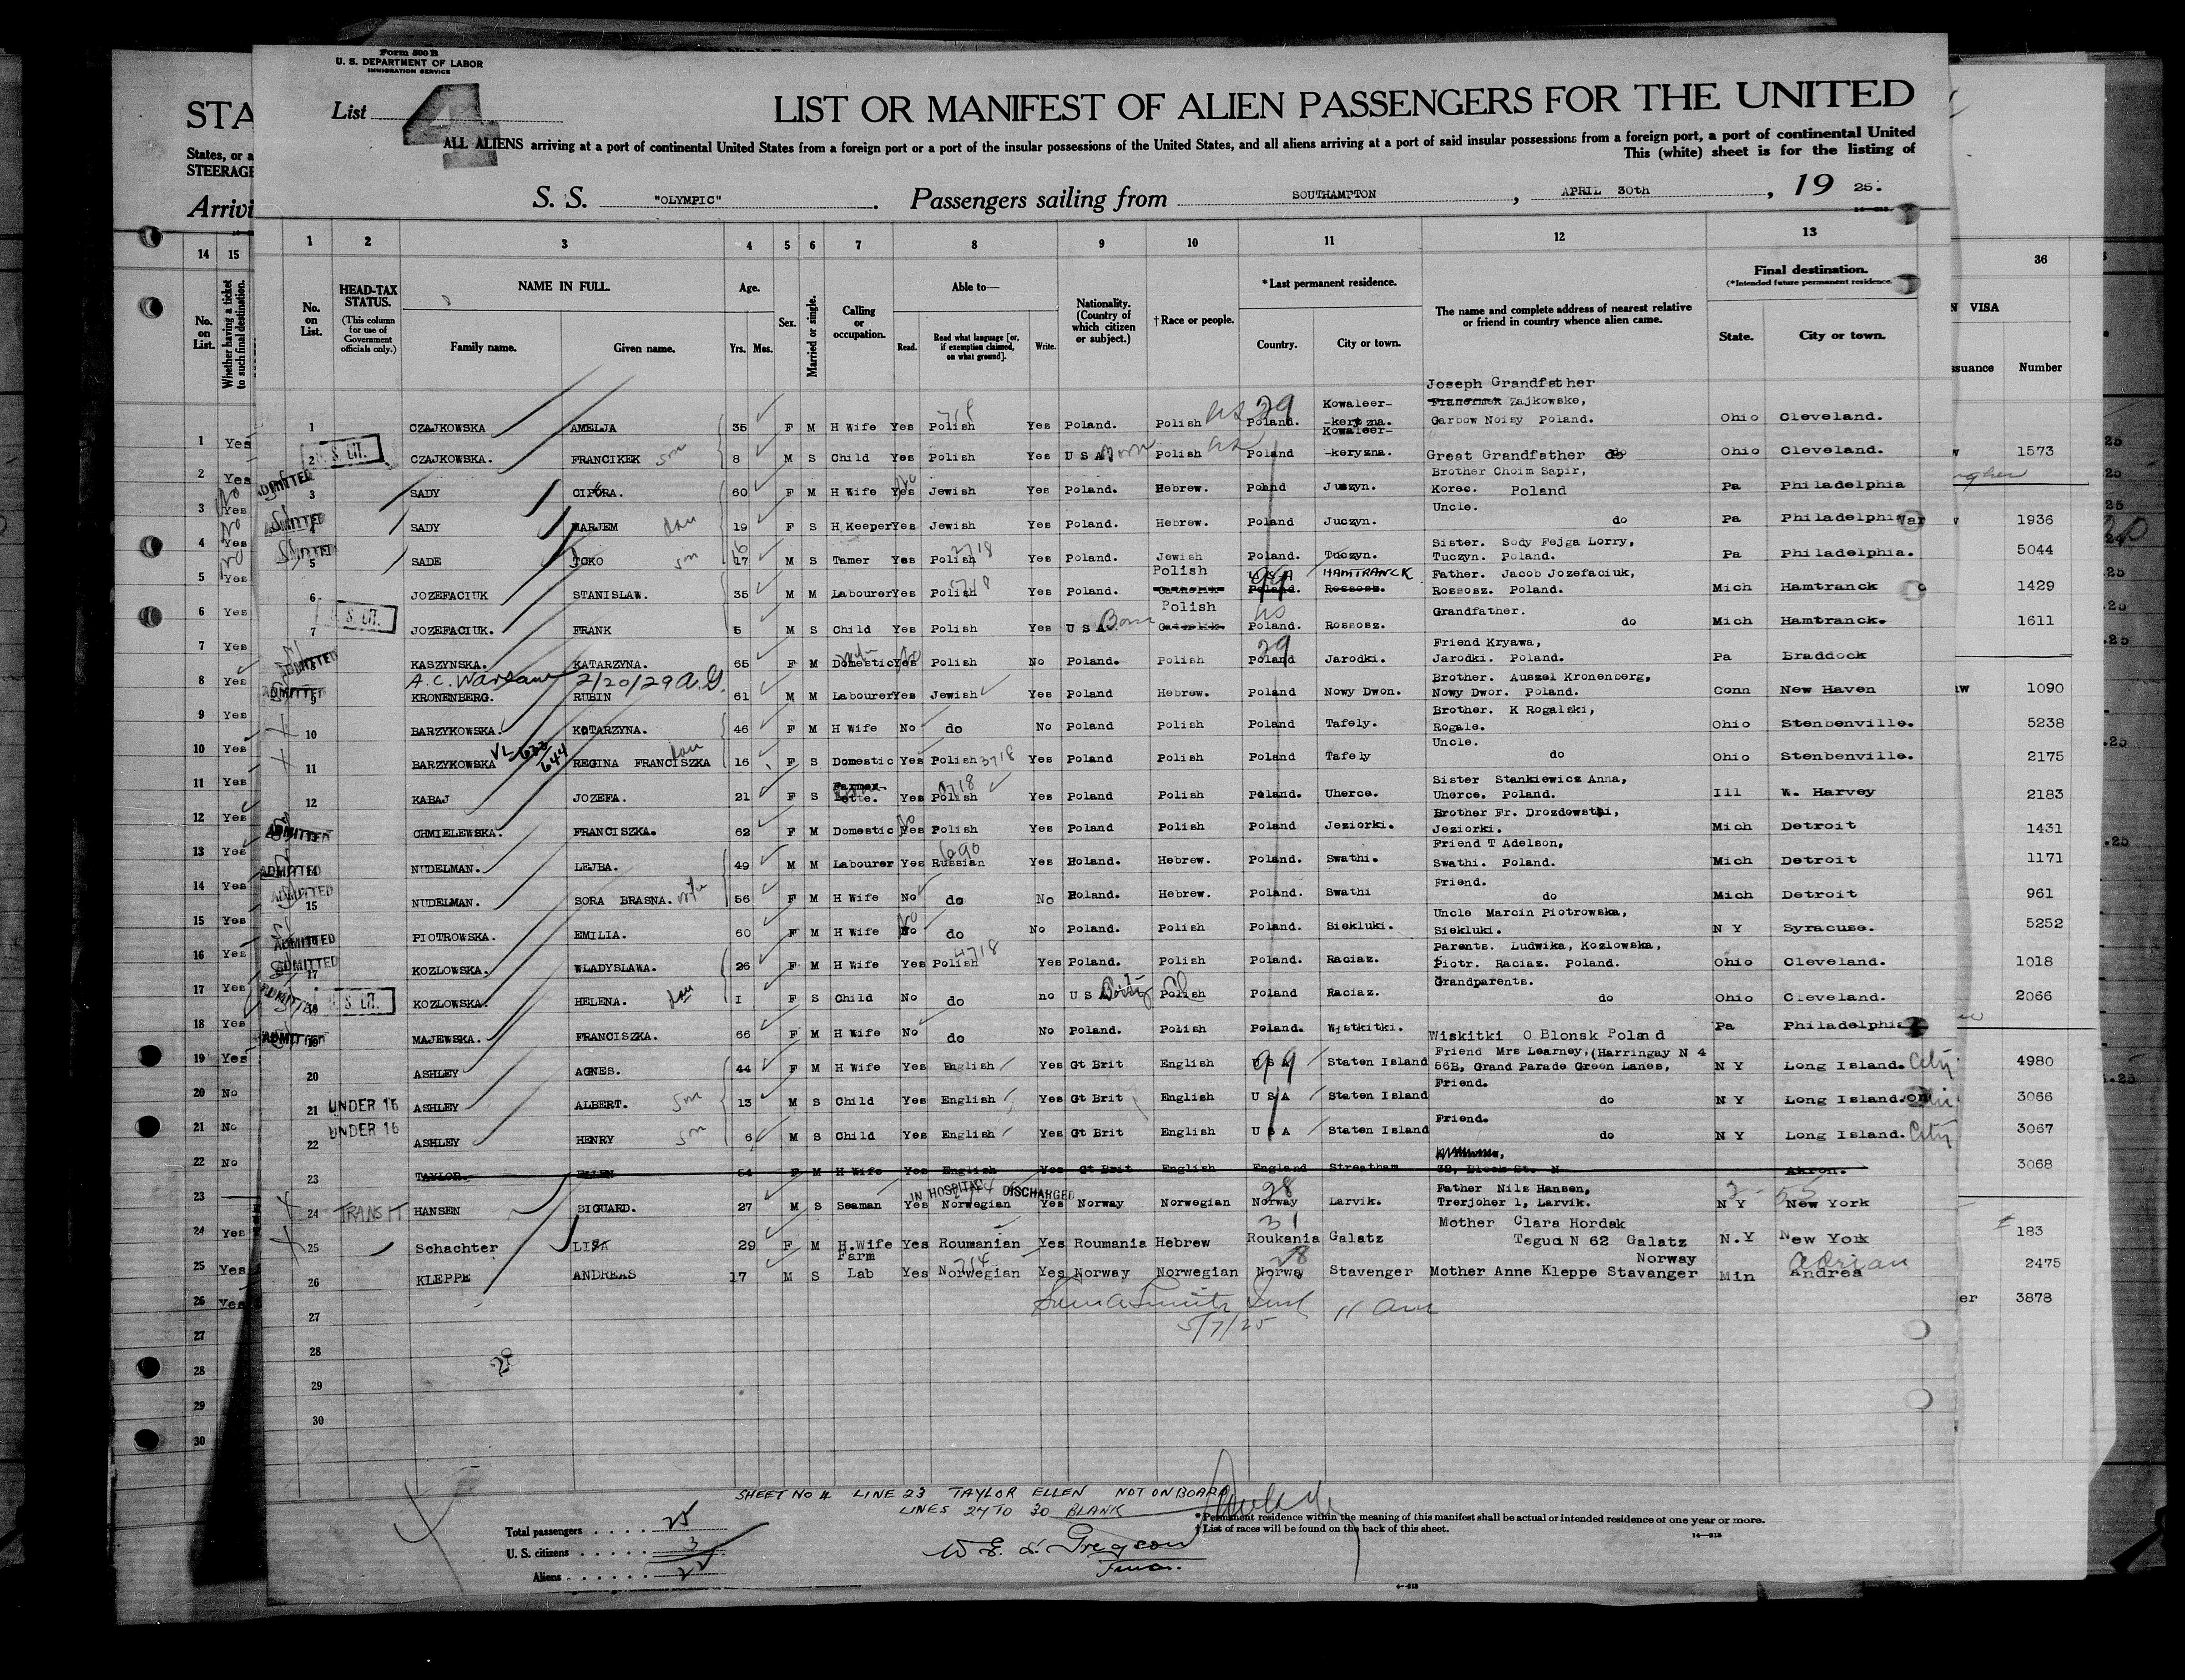 Form 500 B
U. S. DEPARTMENT OF LABOR
IMMIGRATION SERVICE
List 4
LIST OR MANIFEST OF ALIEN PASSENGERS FOR THE UNITED
ALL ALIENS arriving at a port of continental United States from a foreign port or a port of the insular possessions of the United States, and all aliens arriving at a port of said insular possessions from a foreign port, a port of continental United
This (white) sheet is for the listing of
S. S. "OLYMPIC". Passengers sailing from SOUTHAMPTON, APRIL 30th, 19 25.
STA
States, or a
STEERAGE
Arrivi
14 15
No. on List.
Whether having a ticket to such final destination.
1 2 3 4 5 6 7 8 9 10 11 12 13
36
No. on List.
HEAD-TAX STATUS. (This column for use of Government officials only.)
NAME IN FULL.
Family name. Given name.
Age. Yrs. Mos.
Sex.
Married or single.
Calling or occupation.
Able to—
Read. Read what language [or, if exemption claimed, on what ground]. Write.
Nationality. (Country of which citizen or subject.)
†Race or people.
*Last permanent residence.
Country. City or town.
The name and complete address of nearest relative or friend in country whence alien came.
Final destination.
(*Intended future permanent residence.
State. City or town.
N VISA
ssuance Number
1 CZAJKOWSKA AMELJA 35 F M H Wife Yes Polish Yes Poland. Polish Poland. Kowaleer--keryzna. Joseph Grandfather Zajkowske, Garbow Noisy Poland. Ohio Cleveland.
2 U. S. CIT. CZAJKOWSKA. FRANCIKEK son 8 M S Child Yes Polish Yes U S A Born Polish Poland Kowaleer--keryzna. Great Grandfather do Ohio Cleveland. 1573
3 ADMITTED SADY CIPORA. 60 F M H Wife Yes No Jewish Yes Poland. Hebrew. Poland Juszyn. Brother Choim Sapir, Korec. Poland Pa Philadelphia
4 ADMITTED SADY MARJEM dau 19 F S H Keeper Yes Jewish Yes Poland. Hebrew. Poland Juczyn. Uncle. do Pa Philadelphia 1936
5 SADE TOKO son 17 M S Tamer Yes Polish Yes Poland. Jewish Poland. Tuczyn. Sister. Sody Fejga Lorry, Tuczyn. Poland. Pa Philadelphia. 5044
6 JOZEFACIUK STANISLAW. 35 M M Labourer Yes Polish Yes Poland. Polish U S A Poland. HAMTRANCK Rossosz. Father. Jacob Jozefaciuk, Rossosz. Poland. Mich Hamtranck 1429
7 U. S. CIT. JOZEFACIUK. FRANK 5 M S Child Yes Polish Yes U S A. Born Polish Poland. Rossosz. Grandfather. do Mich Hamtranck. 1611
ADMITTED KASZYNSKA. KATARZYNA. 65 F M Domestic Yes Polish No Poland. Polish Poland Jarodki. Friend Kryawa, Jarodki. Poland. Pa Braddock
A.C. Warsaw 2/20/29 A.G.
9 ADMITTED KRONENBERG. RUBIN 61 M M Labourer Yes Jewish Yes Poland Hebrew. Poland Nowy Dwon. Brother. Auszel Kronenberg, Nowy Dwor. Poland. Conn New Haven 1090
10 BARZYKOWSKA. KATARZYNA. 46 F M H Wife No do No Poland Polish Poland Tafely. Brother. K Rogalski, Rogale. Ohio Stenbenville. 5238
11 BARZYKOWSKA REGINA FRANCISZKA dau 16 F S Domestic Yes Polish 3718 Yes Poland Polish Poland Tafely Uncle. do Ohio Stenbenville. 2175
12 KABAJ JOZEFA. 21 F S Farmer-ette. Yes Polish Yes Poland Polish Poland. Uherce. Sister Stankiewicz Anna, Uherce. Poland. Ill W. Harvey 2183
ADMITTED CHMIELEWSKA. FRANCISZKA. 62 F M Domestic Yes No Polish Yes Poland Polish Poland Jeziorki. Brother Fr. Drozdowski, Jeziorki. Mich Detroit 1431
ADMITTED NUDELMAN. LEJBA. 49 M M Labourer Yes Russian Yes Poland. Hebrew. Poland. Swathi. Friend T Adelson, Swathi. Poland. Mich Detroit 1171
15 ADMITTED NUDELMAN. SORA BRASNA. wife 56 F M H Wife No do No Poland. Hebrew. Poland. Swathi Friend. do Mich Detroit 961
ADMITTED PIOTROWSKA. EMILIA. 60 F M H Wife No do No Poland. Polish Poland. Siekluki. Uncle Marcin Piotrowska, Siekluki. N Y Syracuse. 5252
17 ADMITTED KOZLOWSKA. WLADYSLAWA. 26 F M H Wife Yes Polish 4718 Yes Poland. Polish Poland. Raciaz. Parents. Ludwika, Kozlowska, Piotr. Raciaz. Poland. Ohio Cleveland. 1018
18 ADMITTED U. S. CIT. KOZLOWSKA. HELENA. dau I F S Child No do no U S A Polish Poland Raciaz. Grandparents. do Ohio Cleveland. 2066
19 ADMITTED MAJEWSKA. FRANCISZKA. 66 F M H Wife No do No Poland. Polish Poland. Wistkitki. Wiskitki O Blonsk Poland Pa Philadelphia
20 ASHLEY AGNES. 44 F M H Wife Yes English Yes Gt Brit English U S A Staten Island Friend Mrs Learney, (Harringay N 4 56B, Grand Parade Green Lanes, N Y Long Island. City 4980
21 UNDER 16 ASHLEY ALBERT. son 13 M S Child Yes English Yes Gt Brit English U S A Staten Island Friend. do N Y Long Island. 3066
22 UNDER 16 ASHLEY HENRY son 6 M S Child Yes English Yes Gt Brit English U S A Staten Island Friend. do N Y Long Island. City 3067
23 TAYLOR ELLEN 54 F M H Wife Yes English Yes Gt Brit English England Streatham Akron. 3068
IN HOSPITAL DISCHARGED
24 TRANSIT HANSEN SIGUARD. 27 M S Seaman Yes Norwegian Yes Norway Norwegian Norway 28 Larvik. Father Nils Hansen, Trerjoher 1, Larvik. N Y New York
25 Schachter LISA 29 F M H.Wife Yes Roumanian Yes Roumania Hebrew Roukania 31 Galatz Mother Clara Hordak Tegud N 62 Galatz N.Y New York 183
26 KLEPPE ANDREAS 17 M S Farm Lab Yes Norwegian Yes Norway Norwegian Norwa 28 Stavenger Mother Anne Kleppe Stavanger Norway Min Andrea Adrian 2475
3878
27
5/7/25
28
29
30
SHEET NO 4 LINE 23 TAYLOR ELLEN NOT ON BOARD
LINES 24 TO 30 BLANK
Total passengers . . . . . 25
U. S. citizens . . . . . 3
Aliens . . . . . . 22
* Permanent residence within the meaning of this manifest shall be actual or intended residence of one year or more.
† List of races will be found on the back of this sheet.